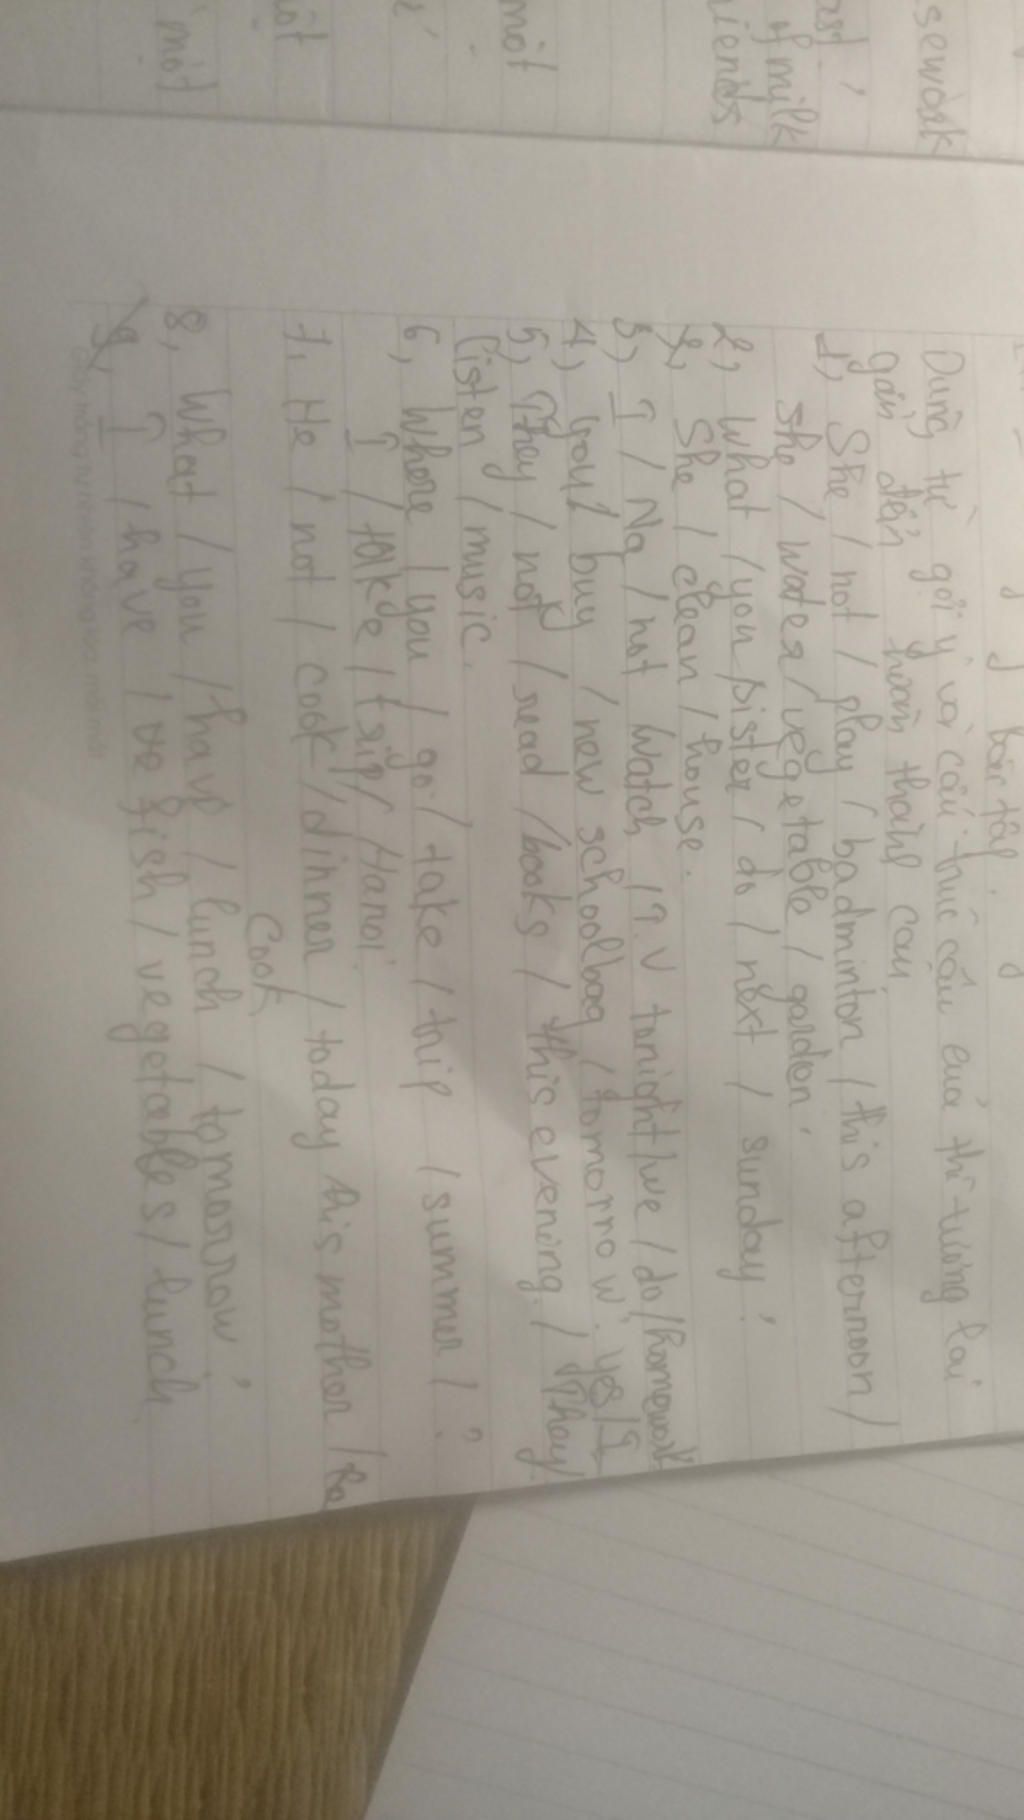 sework
ast,
of milk
riends
một
một
bài tập.
Dùng từ gợi ý và cấu trúc câu của thì tương lai
gần để hoàn thành câu.
1, She / not / play / badminton / this afternoon /
she / water / vegetable / garden.
2, What / you / sister / do / next / sunday.
She / clean / house.
3, I / Na / not watch / T.V tonight / we / do / homework
4, you / buy / new schoolbag / tomorrow. yes / I
5, They / not / read / books / this evening. / They /
listen / music.
6, Where / you / go / take / trip / summer / ?
I / take / trip / Hanoi.
7, He / not / cook / dinner / today his mother / be
Cook
8, What / you / have / lunch / tomorrow.
I / have / fish / vegetables / lunch